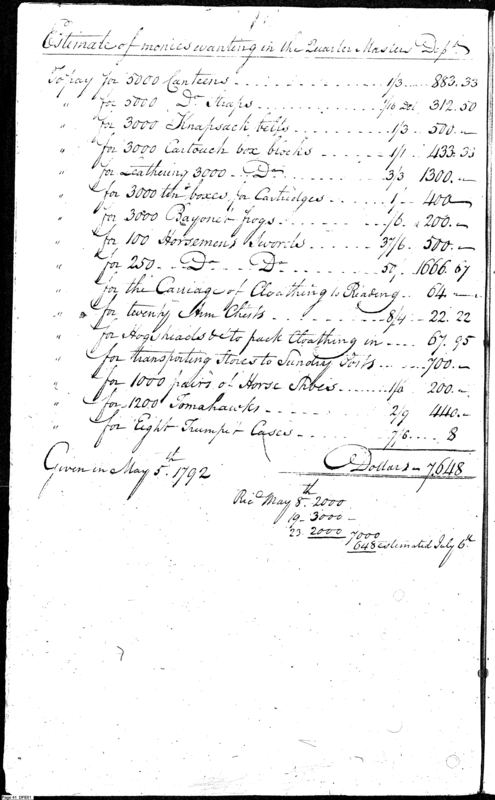 Estimate of monies wanting in the Quarter Masters Dept
To pay for 5000 Canteens 1/3 883.33
" for 5000 Do Straps 1/16 Dol 312.50
" for 3000 Knapsack belts 1/3 500.—
" for 3000 Cartouch box blocks 1/1 433.33
" for Leathering 3000 Do 3/3 1300.—
" for 3000 tin boxes for Cartridges 1. 400
" for 3000 Bayonet frogs /6. 200.—
" for 100 Horsemens Swords 37/6. 500.—
" for 250 Do Do 50/. 1666.67
" for the Carriage of Cloathing to Reading 64.—
" for twenty Arm Chests 8/4 22.22
" for Hogsheads &c to pack Cloathing in 67.95
" for transporting Stores to Sundry Posts 700.—
" for 1000 pairs of Horse Shoes 1/6 200.—
" for 1200 Tomahawks 2/9 440.—
" for Eight Trumpet Cases 7/6 8
Given in May 5th 1792 Dollars — 7,648
Recd May 8th 2000
19 — 3000 —
23. 2000 7000
648 estimated July 6th